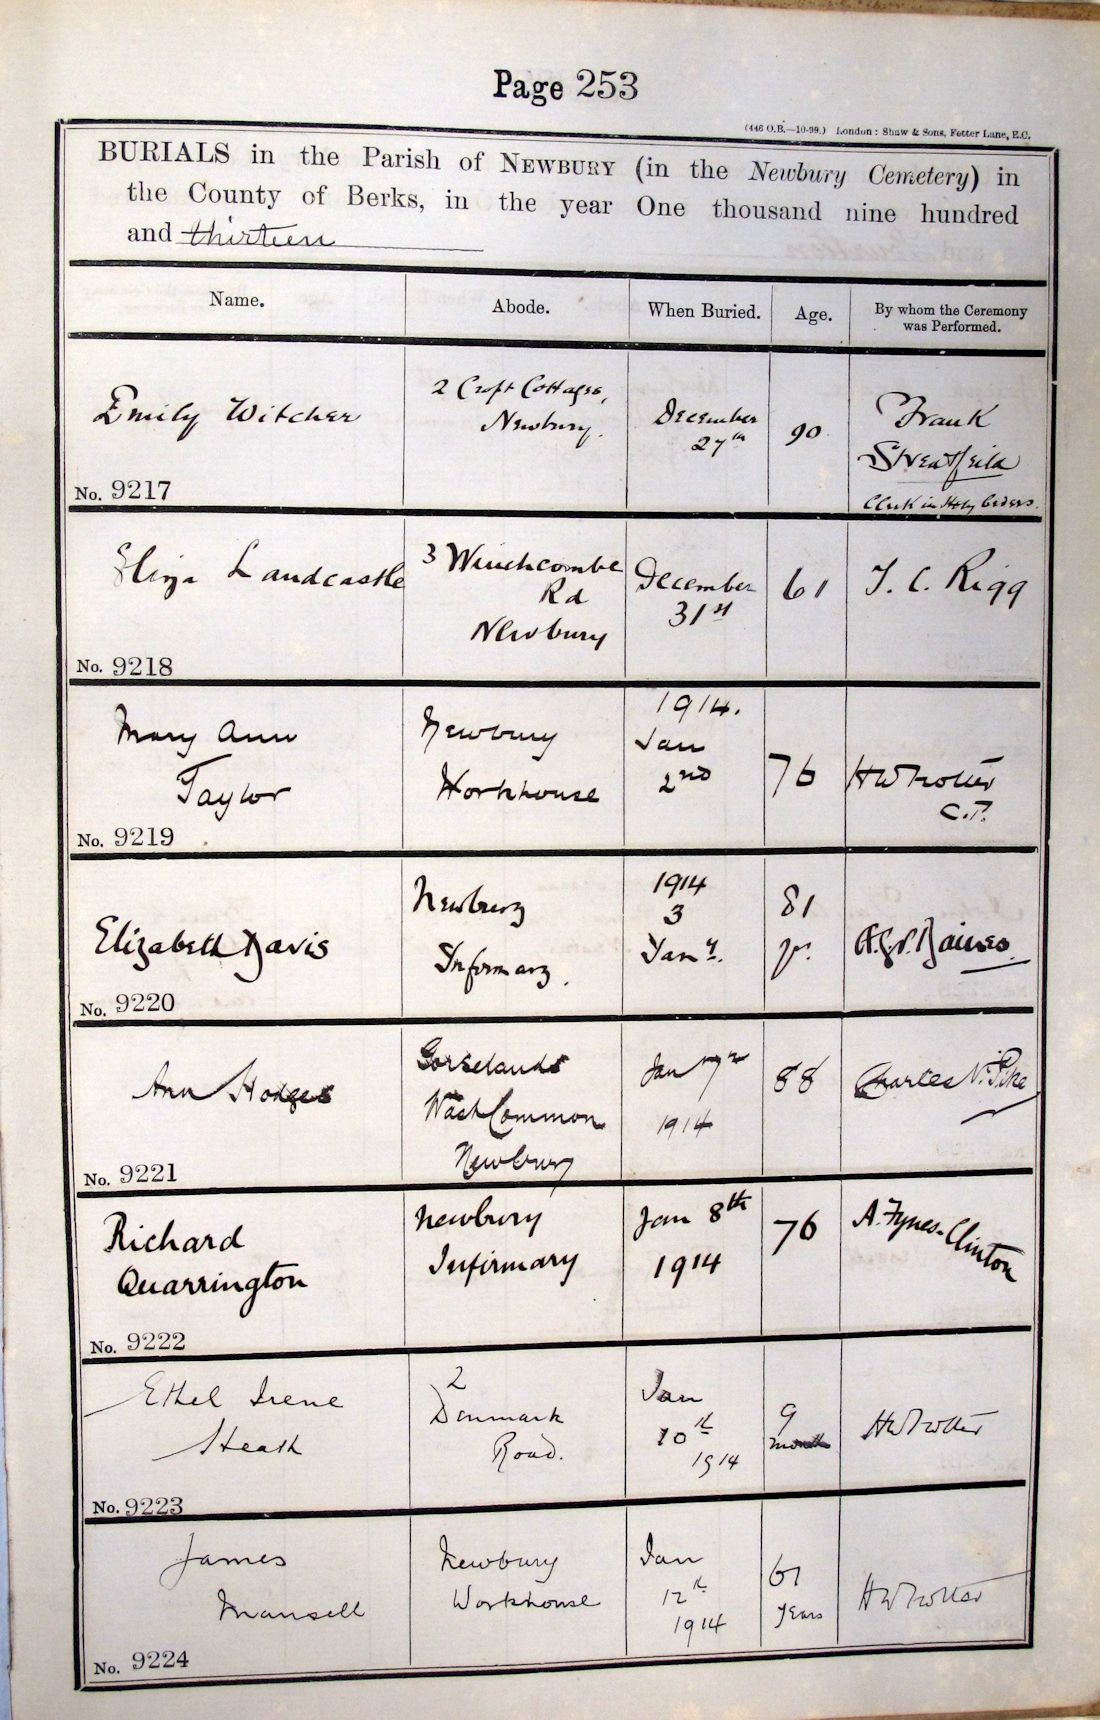 Page 253
(446 O.B.—10-99.) London: Shaw & Sons, Fetter Lane, E.C.
BURIALS in the Parish of NEWBURY (in the Newbury Cemetery) in
the County of Berks, in the year One thousand nine hundred
and thirteen
Name.
Abode.
When Buried.
Age.
By whom the Ceremony
was Performed.
Emily Witcher
No. 9217
2 Croft Cottages,
Newbury.
December
27th
90
Frank
Streatfeild
Clerk in Holy Orders.
Eliza Landcastle
No. 9218
3 Winchcombe
Rd
Newbury
December
31st
61
T. C. Rigg
Mary Ann
Taylor
No. 9219
Newbury
Workhouse
1914.
Jan
2nd
76
HWTrotter
C.P.
Elizabeth Davis
No. 9220
Newbury
Infirmary.
1914
3
Jany.
81
yr.
Baines
Ann Hodges
No. 9221
Gorselands
Wash Common
Newbury
Jan 7th
1914
88
Charles N. Pike
Richard
Quarrington
No. 9222
Newbury
Infirmary
Jan 8th
1914
76
A. Fynes-Clinton
Ethel Irene
Heath
No. 9223
2
Denmark
Road.
Jan
10th
1914
9
months
HWTrotter
James
Mansell
No. 9224
Newbury
Workhouse
Jan
12th
1914
61
years
HWTrotter